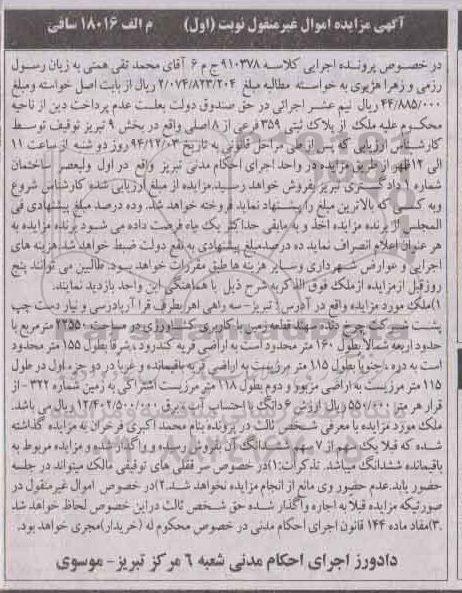 آگهی مزایده اموال غیرمنقول نوبت (اول) م الف ۱۸۰۱۶ سافی
در خصوص پرونده اجرایی کلاسه ۹۱۰۳۷۸ ج م ۶ آقای محمد تقی همتی به زیان رسول
رزمی و زهرا هژبوی به خواسته مطالبه مبلغ ۲/۰۷۴/۸۲۳/۲۰۴ ریال از بابت اصل خواسته ومبلغ
۴۴/۸۸۵/۰۰۰ ریال نیم عشر اجرائی در حق صندوق دولت بعلت عدم پرداخت دین از ناحیه
محکوم علیه ملک از پلاک ثبتی ۳۵۹ فرعی از ۸ اصلی واقع در بخش ۹ تبریز توقیف توسط
کارشناس ارزیابی که پس از طی مراحل قانونی به تاریخ ۹۴/۱۲/۰۳ روز دو شنبه از ساعت ۱۱
الی ۱۲ظهر از طریق مزایده در واحد اجرای احکام مدنی تبریز واقع در اول ولیعصر ساختمان
شماره ۱ دادگستری تبریز بفروش خواهد رسید.مزایده از مبلغ ارزیابی شده کارشناس شروع
وبه کسی که بالاترین مبلغ را پیشنهاد نماید فروخته خواهد شد. وده درصد مبلغ پیشنهادی فی
المجلس از برنده مزایده اخذ و به مابقی حداکثر یک ماه فرصت داده می شود برنده مزایده به
هر عنوان اعلام انصراف نماید ده درصدمبلغ پیشنهادی به نفع دولت ضبط خواهد شد.هزینه های
اجرایی و عوارض شهرداری وسایر هزینه ها طبق مقررات خواهد بود. طالبین می توانند پنج
روزقبل ازمزایده ازملک فوق الذکربه شرح ذیل با هماهنگی این واحد بازدید نمایند.
۱)ملک مورد مزایده واقع در آدرس: تبریز-سه راهی اهر بطرف قرا آربادرسی و نیاز دست چپ
پشت شرکت چرخ دنده سهند قطعه زمین با کاربری کشاورزی در مساحت ۲۲۵۵۰ مترمربع با
حدود اربعه شمالا بطول ۱۶۰ متر محدود است به اراضی قریه کندرود ،شرقا بطول ۱۵۵ متر محدود
است به دره ،جنوبا بطول ۱۱۵ متر مرزیست به اراضی قریه باقیمانده و غربا در دو جزء اول در طول
۱۱۵ متر مرزیست به اراضی مزبور و دوم بطول ۱۱۸ متر مرزیست اشتراکی به زمین شماره ۳۲۲ - از
قرار هر متر ۵۵۰/۰۰۰ ریال ارزش ۶ دانگ با احتساب آب ،برق ۱۲/۴۰۲/۵۰۰/۰۰۰ ریال می باشد.
ملک مورد مزایده با معرفی شخص ثالث در پرونده بنام محمد اکبری فرخران به مزایده گذاشته
شده که قبلا یک سهم از ۷ سهم ششدانگ آن بفروش رسیده و واگذار شده و مزایده مربوط به
باقیمانده ششدانگ میباشد. تذکرات:۱)در خصوص سر قفلی های توقیفی مالک میتواند در جلسه
حضور یابد.عدم حضور وی مانع از انجام مزایده نخواهد شد.۲)در خصوص اموال غیرمنقول در
صورتیکه مزایده قبلا به اجاره واگذار شده حق شخص ثالث دراین خصوص لحاظ خواهد شد
.۳)مفاد ماده ۱۴۴ قانون اجرای احکام مدنی در خصوص محکوم له (خریدار)مجری خواهد بود.
دادورز اجرای احکام مدنی شعبه ۶ مرکز تبریز- موسوی